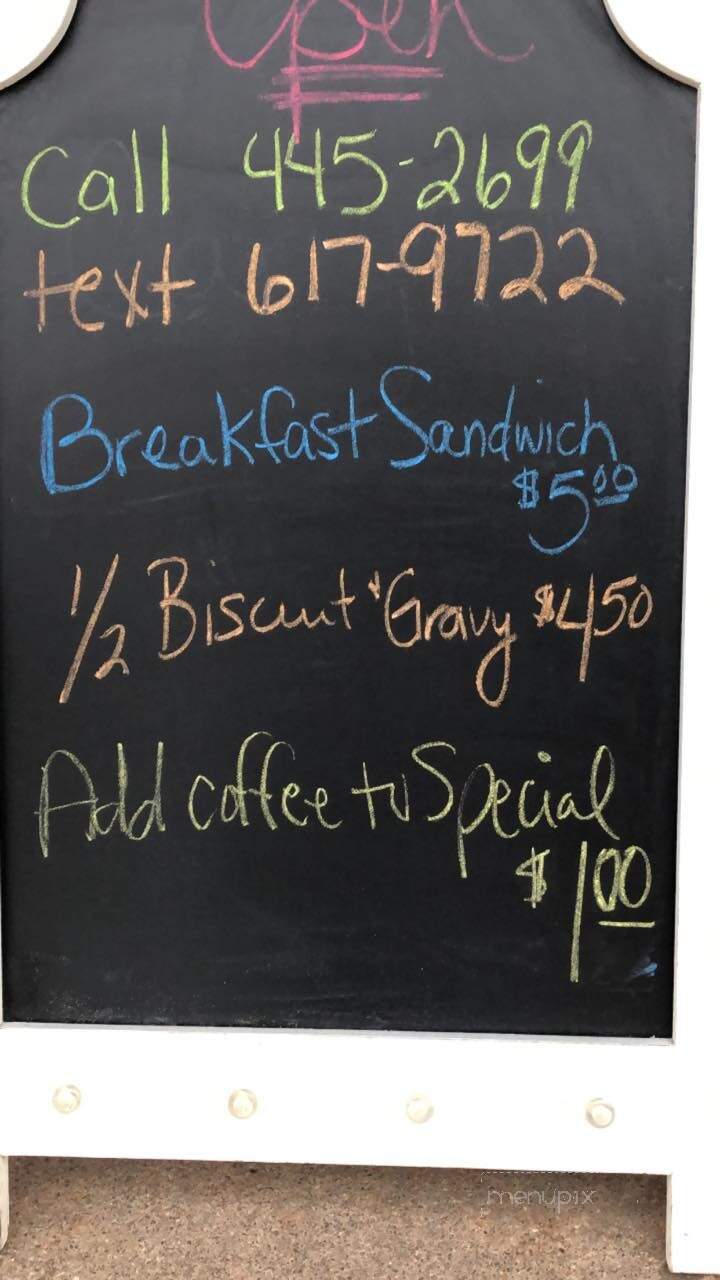 Open
Call 445-2699
text 617-9722
Breakfast Sandwich
$5.00
1/2 Biscuit & Gravy $4.50
Add coffee to Special
$1.00
menupix